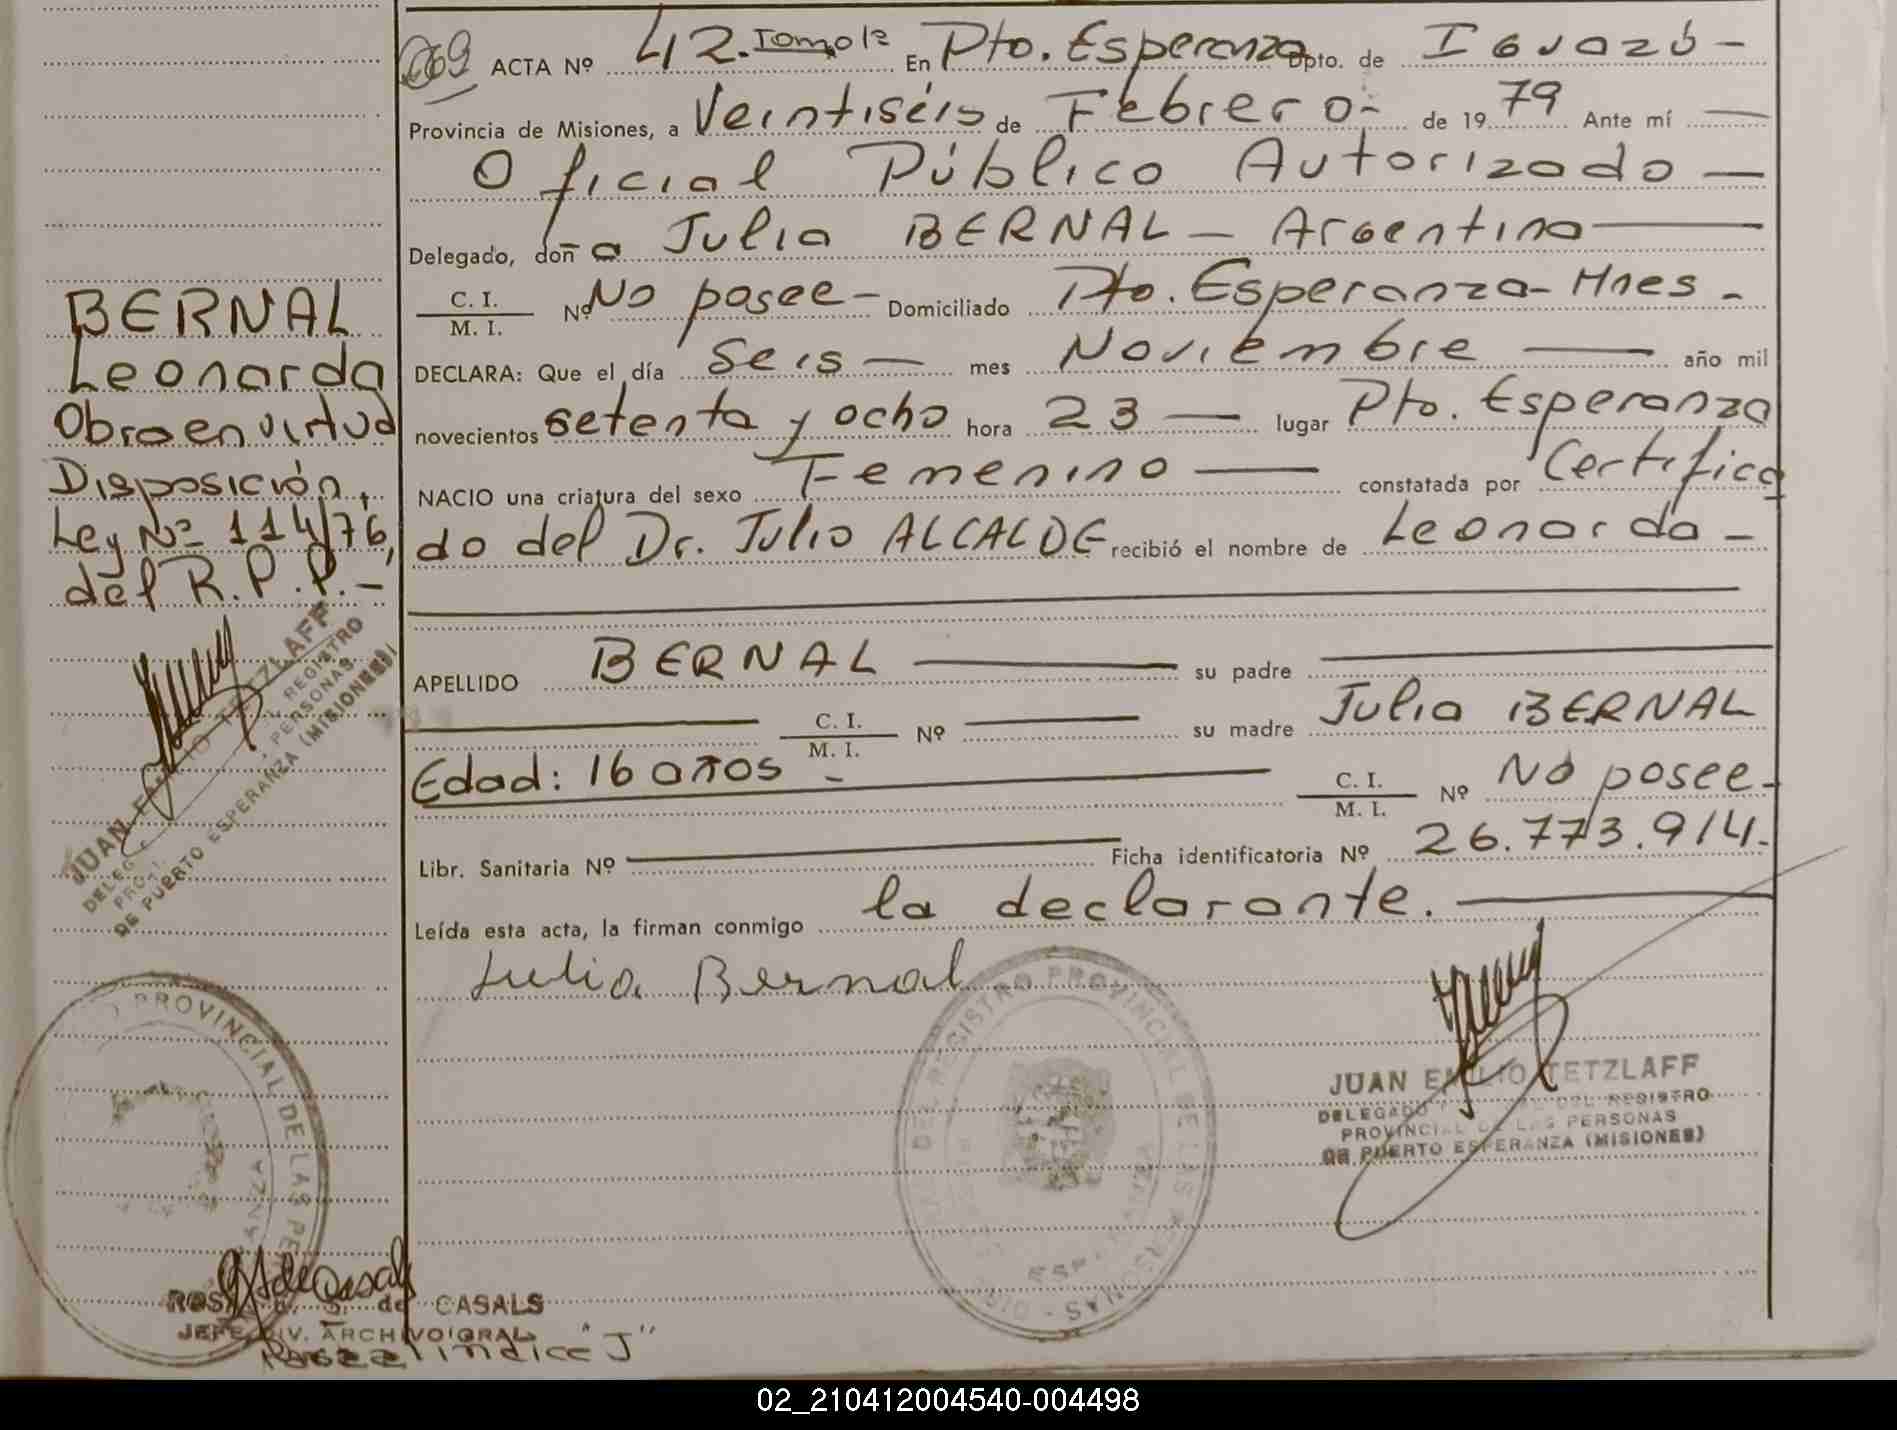 069 ACTA Nº 42. Tomo 1º En Pto. Esperanza Dpto. de Iguazú -
Provincia de Misiones, a Veintiséis de Febrero - de 1979 Ante mí
Oficial Público Autorizado
Delegado, doña Julia BERNAL - Argentina
C. I. / M. I. Nº No posee - Domiciliado Pto. Esperanza - Mnes -
DECLARA: Que el día Seis mes Noviembre año mil
novecientos setenta y ocho hora 23 lugar Pto. Esperanza
NACIO una criatura del sexo Femenino constatada por Certifica
do del Dr. Julio ALCALDE recibió el nombre de Leonarda -
APELLIDO BERNAL su padre
C. I. / M. I. Nº su madre Julia BERNAL
Edad: 16 años - C. I. / M. I. Nº No posee -
Libr. Sanitaria Nº Ficha identificatoria Nº 26.773.914.
Leída esta acta, la firman conmigo la declarante.
Julia Bernal
BERNAL
Leonarda
Obra en virtud
Disposición,
Ley Nº 114/76,
del R.P.P. -
JUAN EMILIO TETZLAFF
REGISTRO
PERSONAS
DE PUERTO ESPERANZA (MISIONES)
PROVINCIAL DE LAS
DEL REGISTRO PROVINCIAL DE LAS PERSONAS
JUAN EMILIO TETZLAFF
DELEGADO DEL REGISTRO
PROVINCIAL DE LAS PERSONAS
DE PUERTO ESPERANZA (MISIONES)
de CASALS
JEFE DIV. ARCHIVO GRAL
indice "J"
02_210412004540-004498